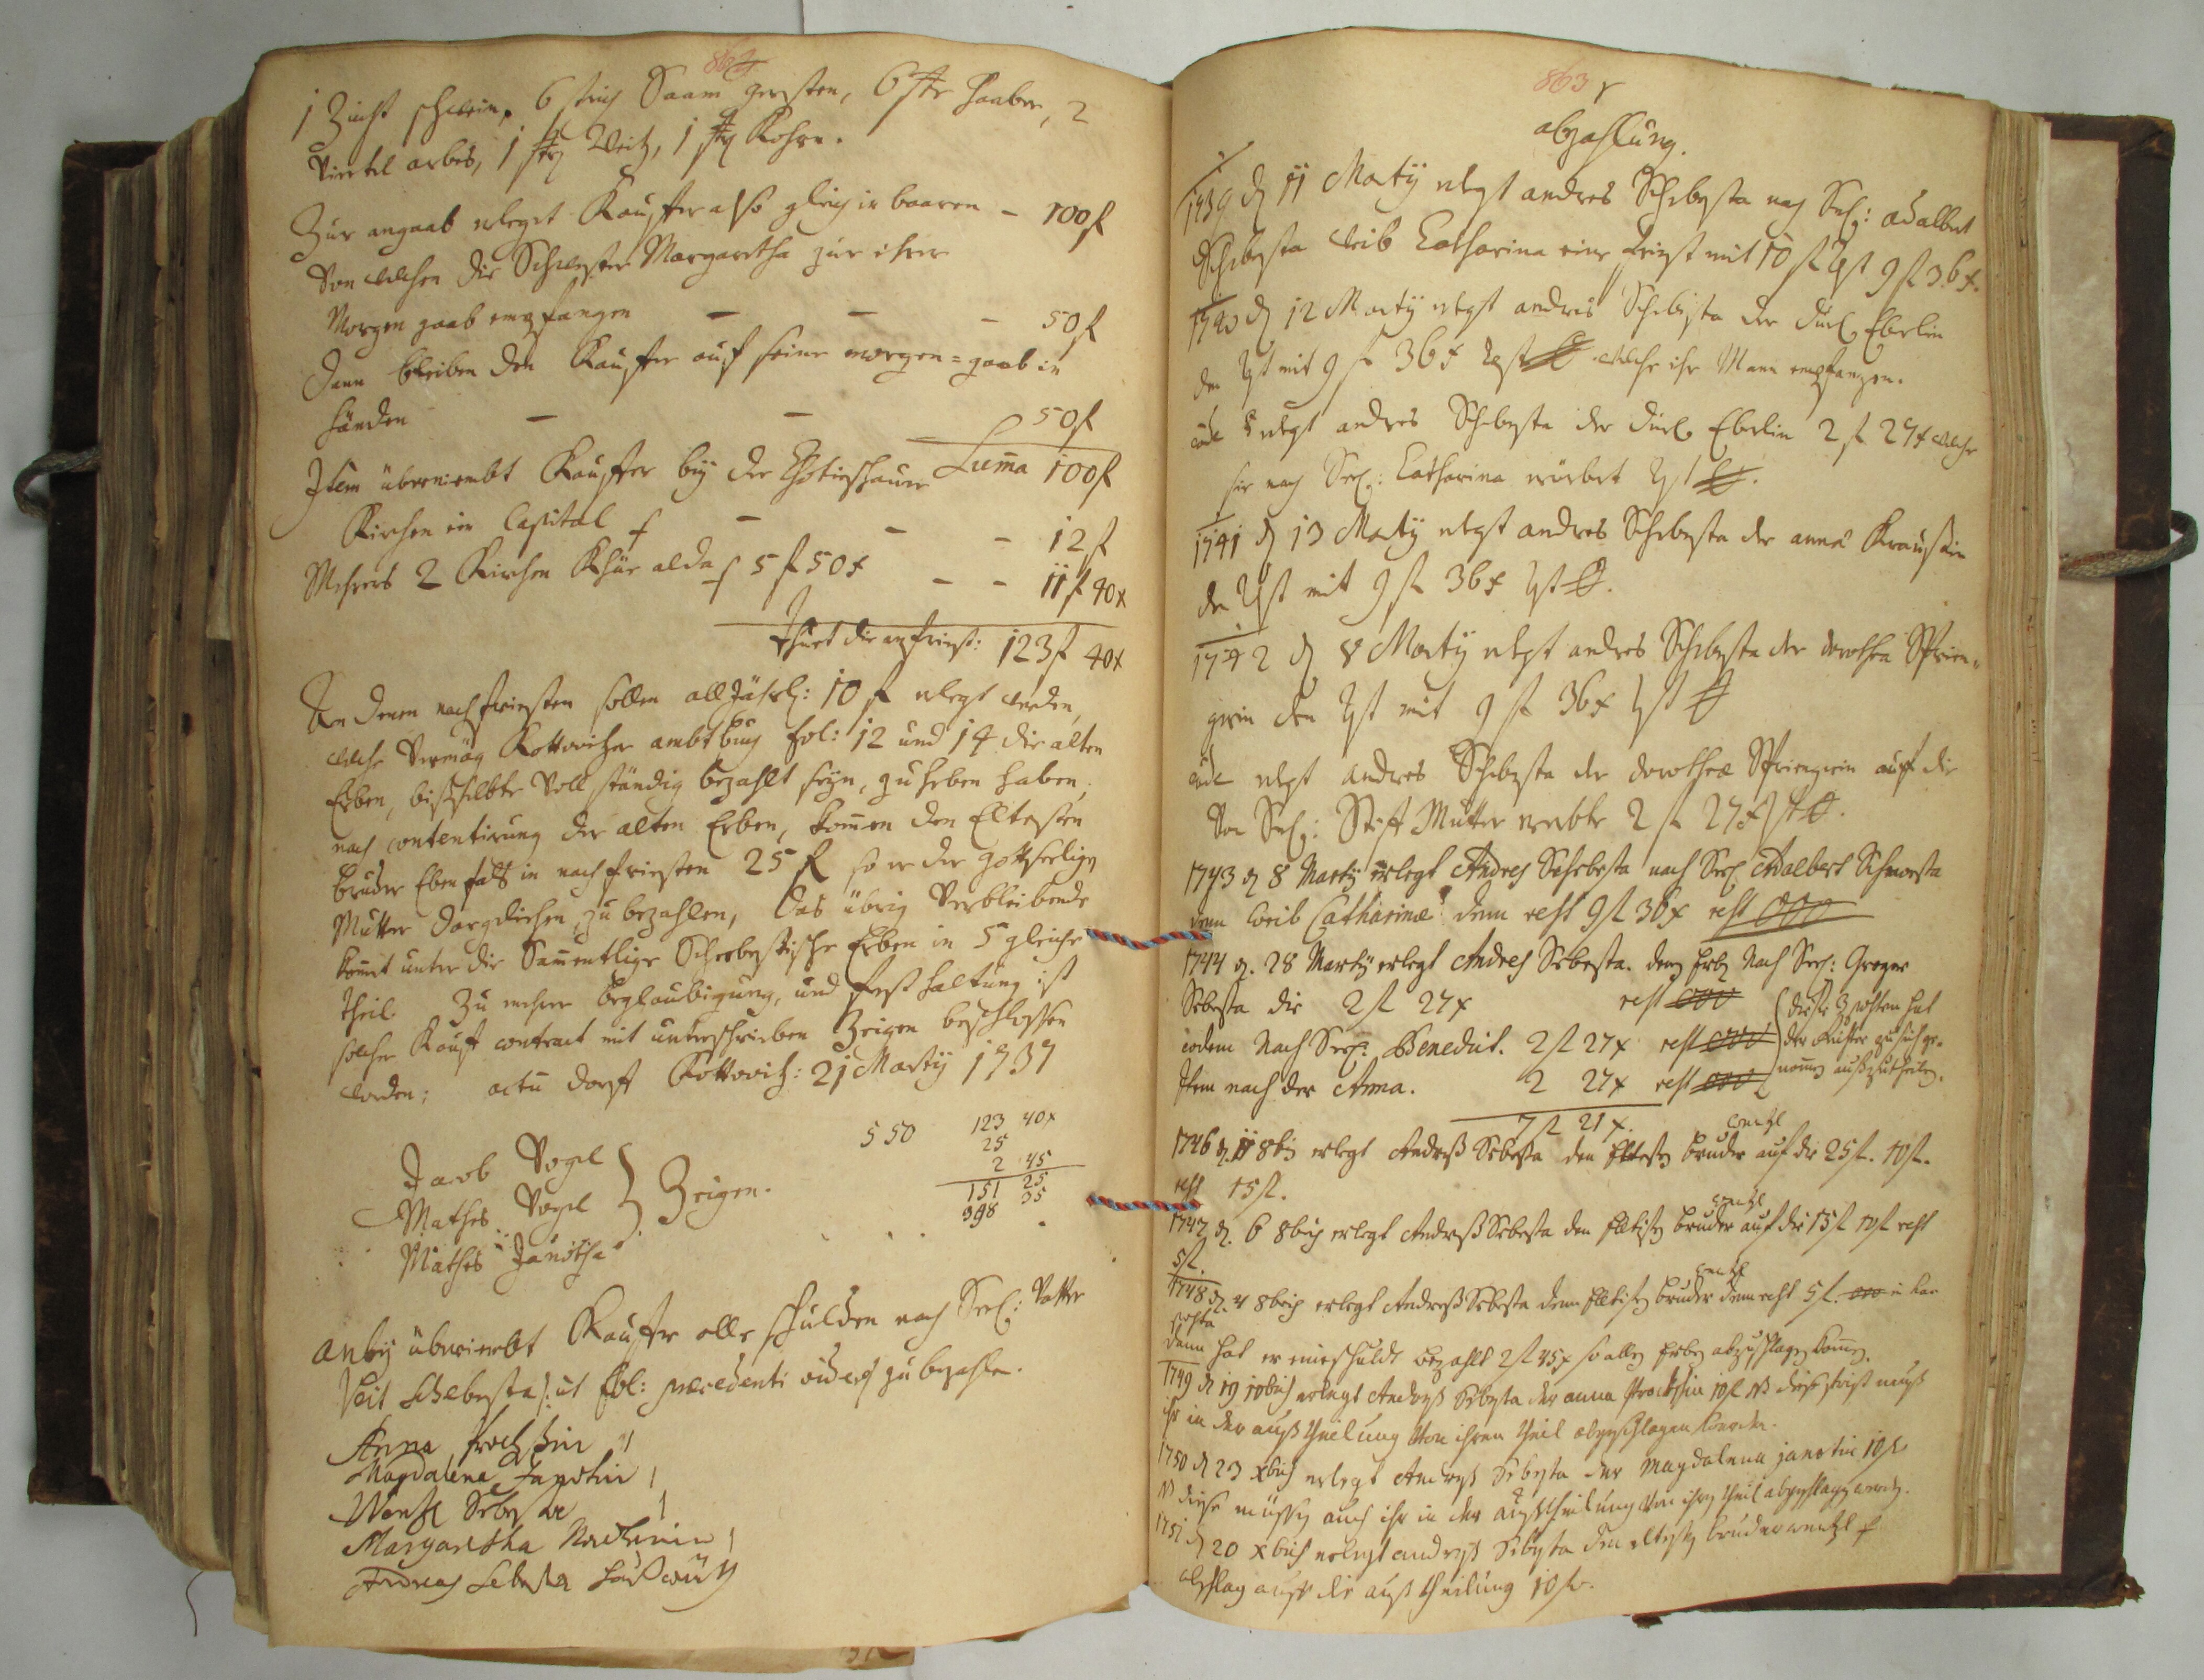 862
1 Zucht schwein, 6 strich Saam gersten, 6 str haaber, 2
Viertel arbes, 1 str Weitz, 1 str Kohrn.
Zur angaab erleget Kauffer also gleich in baaren – 100 f
Von welchen die Schwester Margaretha zur ihrer
Morgen gaab empfangen – – – 50 f
Dann bleiben den Kauffer auf seine morgen=gaab in
händen – – 50 f
Summa 100 f
Item übernimbt Kauffer bey der Kirchen ein Capital f – – – 12 f
Mehrers 2 Kirchen Khüe alda f 5 f 50 x – – 11 f 40 x
Thuet die angfriest: 123 f 40 x
An denen nachfriesten sollen all Jährl: 10 f erlegt werden,
welche Vermög Kottowitzer ambtbuch fol: 12 und 14 die alten
Erben, biß selbte Vollständig bezahlt seyn, zu heben haben,
nach contentirung der alten Erben, komen den Eltesten
bruder Ebenfals in nachfriesten 25 f so er der gottseeligen
Mutter dargeliehen, zu bezahlen, das übrig Verbleibende
komt unter die Samentliche Schebestische Erben in 5 gleiche
theil. Zu mehrer beglaubigung, und festhaltung ist
solcher Kauf contract mit unterschrieben Zeigen beschlossen
worden; actu dorff Kottowitz: 21 Marty 1737
550 123 40x
25
2 45
151 25
398 35
Jacob Vogel
Mathes Vogel } Zeigen.
Mathes Janotha
anbey übernimbt Kauffer alle schulden nach Seel: Vatter
Veit Schebesta /: ut fol: præcedenti videre zu bezahlen.
Anna
Magdalena Janotin
Wentzl Sebesta
Margaretha
Andreas Sebesta
863
abzahlung.
1739 d 11 Marty erlegt andres Schebesta nach Seel: adalbert
Schebesta weib Catharina eine friest mit 10 f rest 9 f 36 x.
1740 d 12 Marty erlegt andres Schebesta der Eberlin
den rest mit 9 f 36 x rest welche ihr Mann empfangen.
erlegt andres Schebesta der Eberlin 2 f 27 x welche
sie nach Seel: Catharina ererbet rest.
1741 d 13 Marty erlegt andres Schebesta der anna Kraußin
den rest mit 9 f 36 x rest.
1742 d 8 Marty erlegt andres Schebesta der dorothea Sprin=
gerin den rest mit 9 f 36 x rest
erlegt andres Schebesta der dorothea Springerin auf die
Von Seel: Stieff Mutter ererbte 2 f 27 x rest.
1743 d 8 Marty erlegt Andres Schebesta nach Seel Adalbert Schewesta
denn weib Catharinæ denn rest 9 f 36 x rest 000
1744 d. 28 Marty erlegt Andres Sebesta. den Erben Nach Seel: Greger
Sebesta die 2 f 27 x rest 000
eodem Nach Seel: Benedict. 2 f 27 x rest 000
Item nach der Anna. 2 27 x rest 000
(diese 3 posten hat
der Richter zu sich ge=
nomen außzutheilen.
7 f 21 x.
1746 d. 11 8bris erlegt Andreß Sebesta den Eltesten bruder wentzl auf die 25 f. 10 f.
rest 15 f.
1747 d. 6 8bris erlegt Andreß Sebesta den Eltisten bruder wentzl auf die 15 f 10 f rest
5 f.
1748 d. 4 8bris erlegt Andreß Sebesta denn Eltisten bruder wentzl denn rest 5 f. 000
dann hat er eine schuldt bezahlt 2 f 45 x so allen Erben abzuschlagen komen.
1749 d 19 10bris erlegt Andreß Sebesta der anna 10 f NB diese frist muß
ihr in der außtheilung Von ihren theil abgeschlagen werden.
1750 d 23 xbris erlegt Andreß Sebesta der Magdalena janotin 10 f
NB diese müssen auch ihr in der außtheilung Von ihren theil abgeschlagen werden.
1751 d 20 xbris erlegt andreß Sebesta den eltesten bruder wentzl
abschlag auff die auß theilung 10 f.